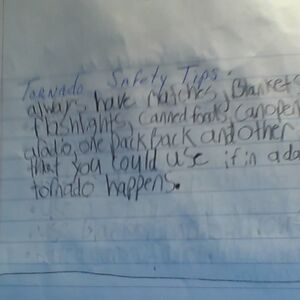 Tornado Safety Tips.
always have Matches, Blankets
flashlights, canned foods, can open
aladio, one back Back and other
that you could use if in a da
tornado happens.